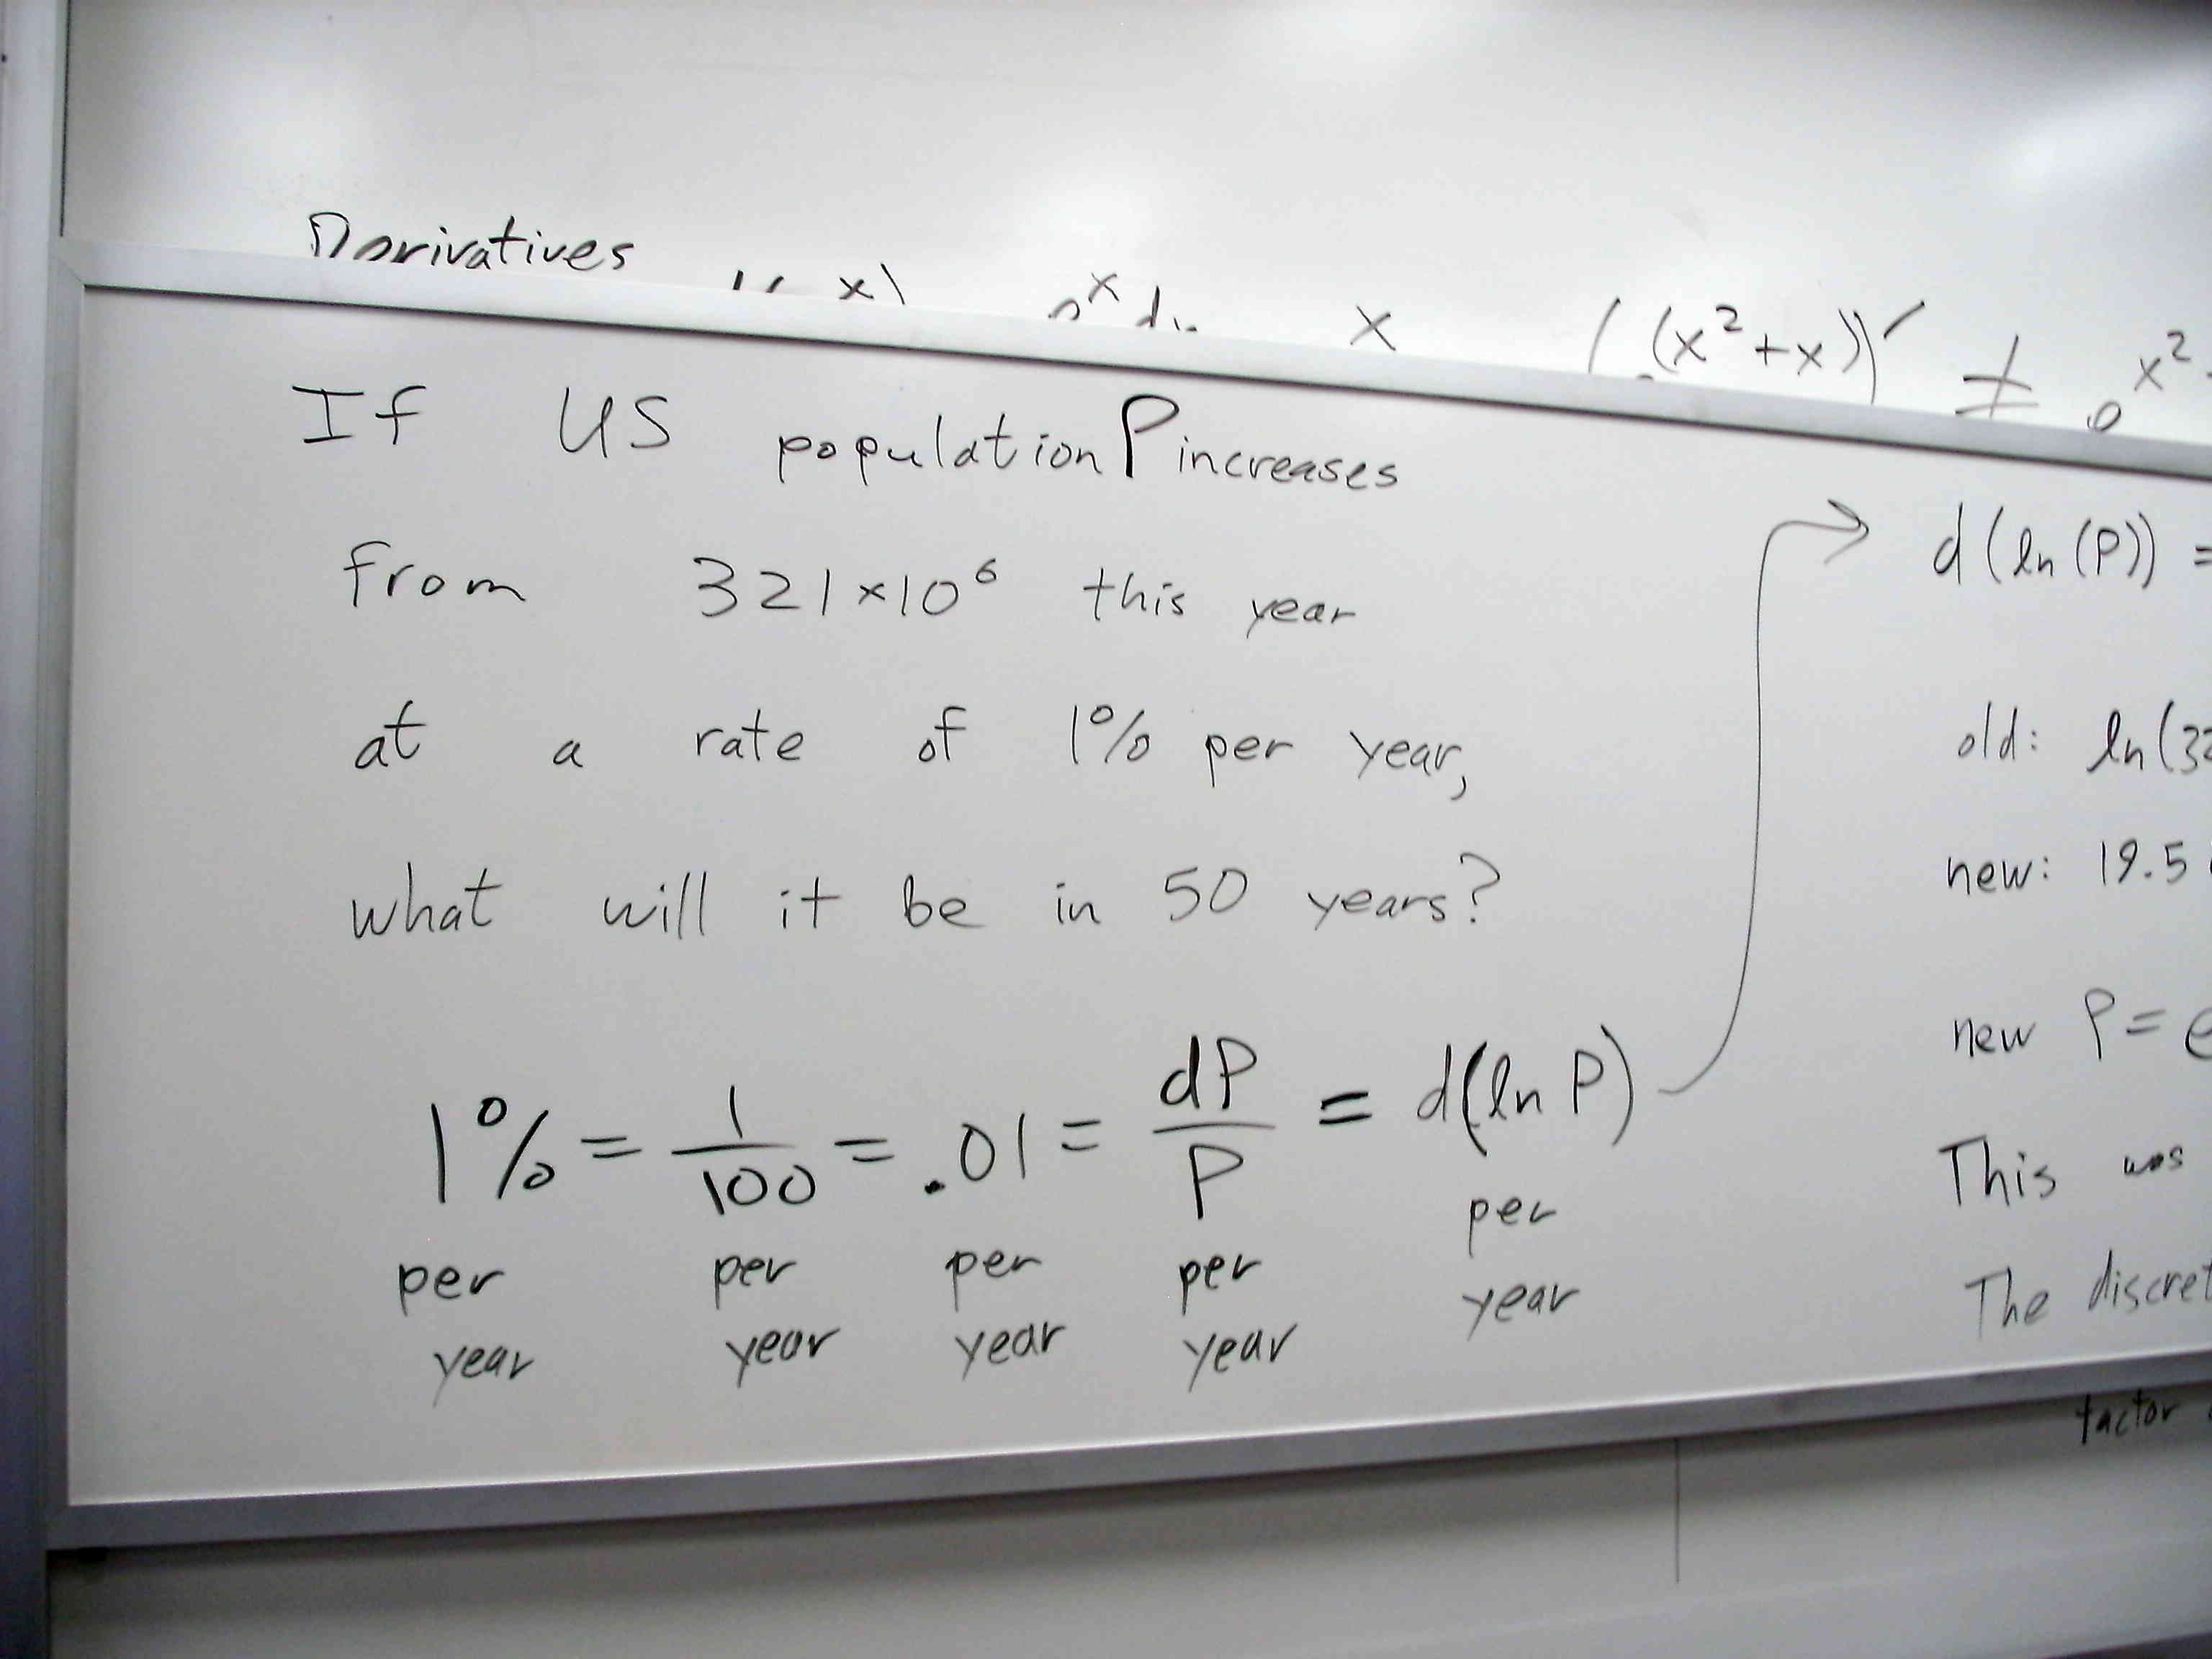 Derivatives
x (x²+x))′ ≠ x²
If US population P increases
from 321×10⁶ this year
at a rate of 1% per year,
what will it be in 50 years?
1% = 1/100 = .01 = dP/P = d(ln P)
per per per per per
year year year year year
d(ln(P)) =
old: ln(32
new: 19.5
new P = e
This was
The discret
factor